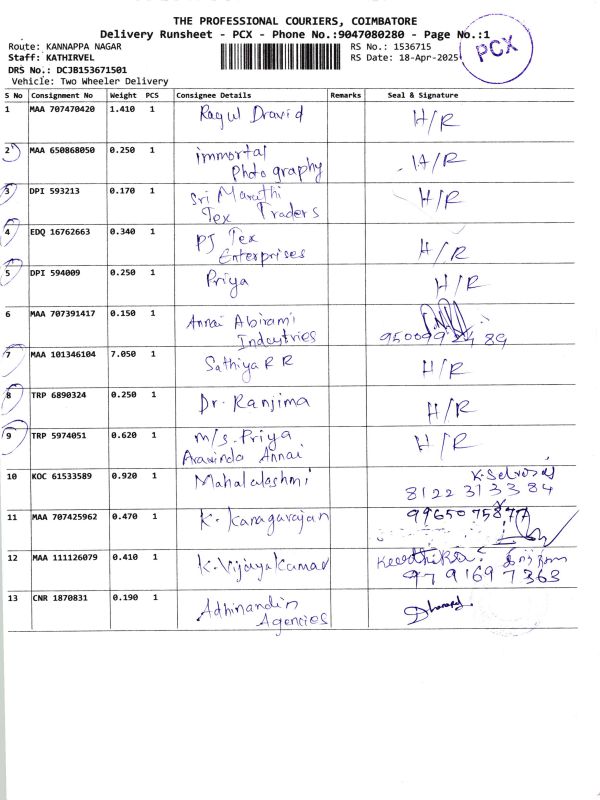 THE PROFESSIONAL COURIERS, COIMBATORE
Delivery Runsheet - PCX - Phone No.:9047080280 - Page No.:1
Route: KANNAPPA NAGAR
RS No.: 1536715
Staff: KATHIRVEL
RS Date: 18-Apr-2025
DRS No.: DCJB153671501
Vehicle: Two Wheeler Delivery
PCX
S No Consignment No Weight PCS Consignee Details Remarks Seal & Signature
1 MAA 707470420 1.410 1 Ragul Dravid H/R
2 MAA 650868050 0.250 1 immortal H/R
Photography
3 DPI 593213 0.170 1 Sri Maruthi H/R
Tex Traders
4 EDQ 16762663 0.340 1 PJ Tex H/R
Enterprises
5 DPI 594009 0.250 1 Priya H/R
6 MAA 707391417 0.150 1 Annai Abirami
Industries
7 MAA 101346104 7.050 1 Sathiya R R H/R
8 TRP 6890324 0.250 1 Dr. Ranjima H/R
9 TRP 5974051 0.620 1 M/s. Priya H/R
Aravindo Annai
10 KOC 61533589 0.920 1 Mahalalashmi K. Selvaraj
8122 313384
11 MAA 707425962 0.470 1 K. Kanagarajan 9965075877
12 MAA 111126079 0.410 1 K. Vijayakumar Keerthika
9791697363
13 CNR 1870831 0.190 1 Adhinandin
Agencies